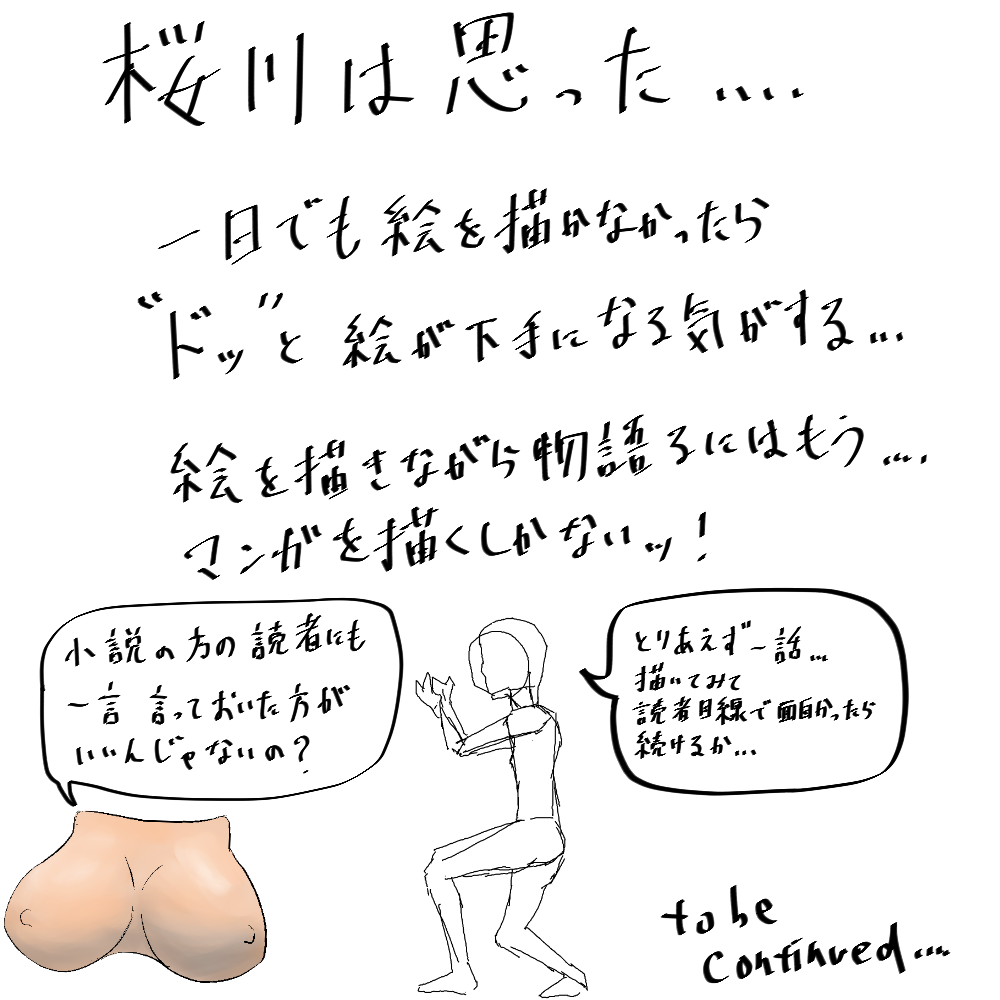 桜川は思った....
一日でも絵を描かなかったら
"ドッ"と 絵が下手になる気がする...
絵を描きながら物語るにはもう....
マンガを描くしかないッ!
小説の方の読者にも
一言 言っておいた方が
いいんじゃないの?
とりあえず一話...
描いてみて
読者目線で面白かったら
続けるか...
to be
continued...